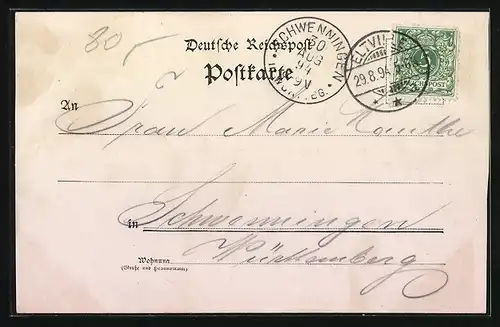 80
Deutsche Reichspost
Postkarte
SCHWENNINGEN
30
AUG
94
ELTVILLE
29.8.94
An
Frau Marie
in
Schwenningen
Württemberg
Wohnung
(Straße und Hausnummer)